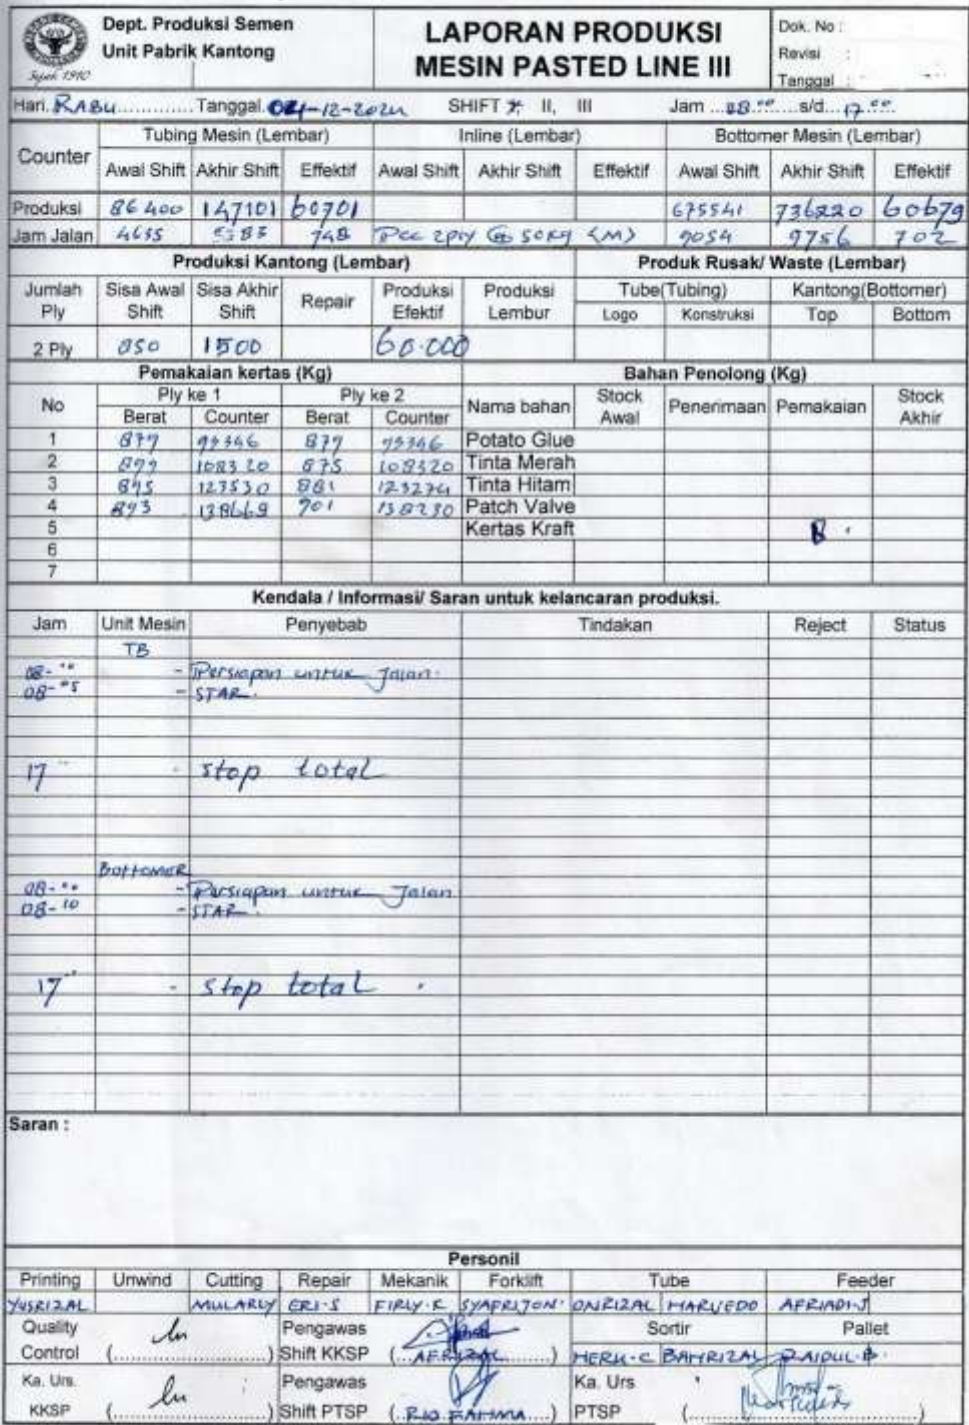 Dept. Produksi Semen
Unit Pabrik Kantong
Sejak 1910
LAPORAN PRODUKSI
MESIN PASTED LINE III
Dok. No :
Revisi :
Tanggal :
Hari. RABU Tanggal. 04-12-2024 SHIFT I, II, III Jam 08.00 s/d 17.00
Counter Tubing Mesin (Lembar) Inline (Lembar) Bottomer Mesin (Lembar)
Awal Shift Akhir Shift Effektif Awal Shift Akhir Shift Effektif Awal Shift Akhir Shift Effektif
Produksi 86400 147101 60701 675541 736220 60679
Jam Jalan 4635 5383 748 PCC 2ply @ 50kg (M) 9054 9756 702
Produksi Kantong (Lembar) Produk Rusak/ Waste (Lembar)
Jumlah Ply Sisa Awal Shift Sisa Akhir Shift Repair Produksi Efektif Produksi Lembur Tube(Tubing) Kantong(Bottomer)
Logo Konstruksi Top Bottom
2 Ply 850 1500 60.000
Pemakaian kertas (Kg) Bahan Penolong (Kg)
No Ply ke 1 Ply ke 2 Nama bahan Stock Awal Penerimaan Pemakaian Stock Akhir
Berat Counter Berat Counter
1 879 879 Potato Glue
2 899 108320 875 108320 Tinta Merah
3 895 123530 881 123274 Tinta Hitam
4 893 138669 901 138230 Patch Valve
5 Kertas Kraft
6
7
Kendala / Informasi/ Saran untuk kelancaran produksi.
Jam Unit Mesin Penyebab Tindakan Reject Status
TB
08-00 - Persiapan untuk Jalan.
08-05 - STAR.
17 - stop total
Bottomer
08-00 - Persiapan untuk Jalan
08-10 - STAR.
17 - stop total
Saran :
Personil
Printing Unwind Cutting Repair Mekanik Forklift Tube Feeder
YUSRIZAL MULARLY ERI-S FIRLY-R SYAFRIJON ONRIZAL MARVEDO AFRIADI-J
Quality Control (..............) Pengawas Shift KKSP (..AFRIZAL..) Sortir Pallet
HERU-C BAHRIZAL
Ka. Urs. KKSP (..............) Pengawas Shift PTSP (..RIO FAHMA..) Ka. Urs PTSP (..............)